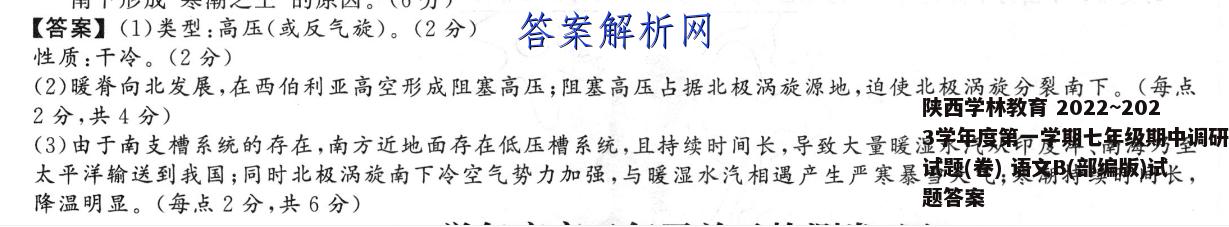 南下形成“寒潮之王”的原因。(6分)
【答案】(1)类型:高压(或反气旋)。(2分)
答案解析网
性质:干冷。(2分)
(2)暖脊向北发展,在西伯利亚高空形成阻塞高压;阻塞高压占据北极涡旋源地,迫使北极涡旋分裂南下。(每点
2分,共4分)
(3)由于南支槽系统的存在,南方近地面存在低压槽系统,且持续时间长,导致大量暖湿水汽从印度洋、南海乃至
太平洋输送到我国;同时北极涡旋南下冷空气势力加强,与暖湿水汽相遇产生严寒暴雪天气;寒潮持续时间长,
降温明显。(每点2分,共6分)
陕西学林教育 2022~202
3学年度第一学期七年级期中调研
试题(卷) 语文B(部编版)试
题答案